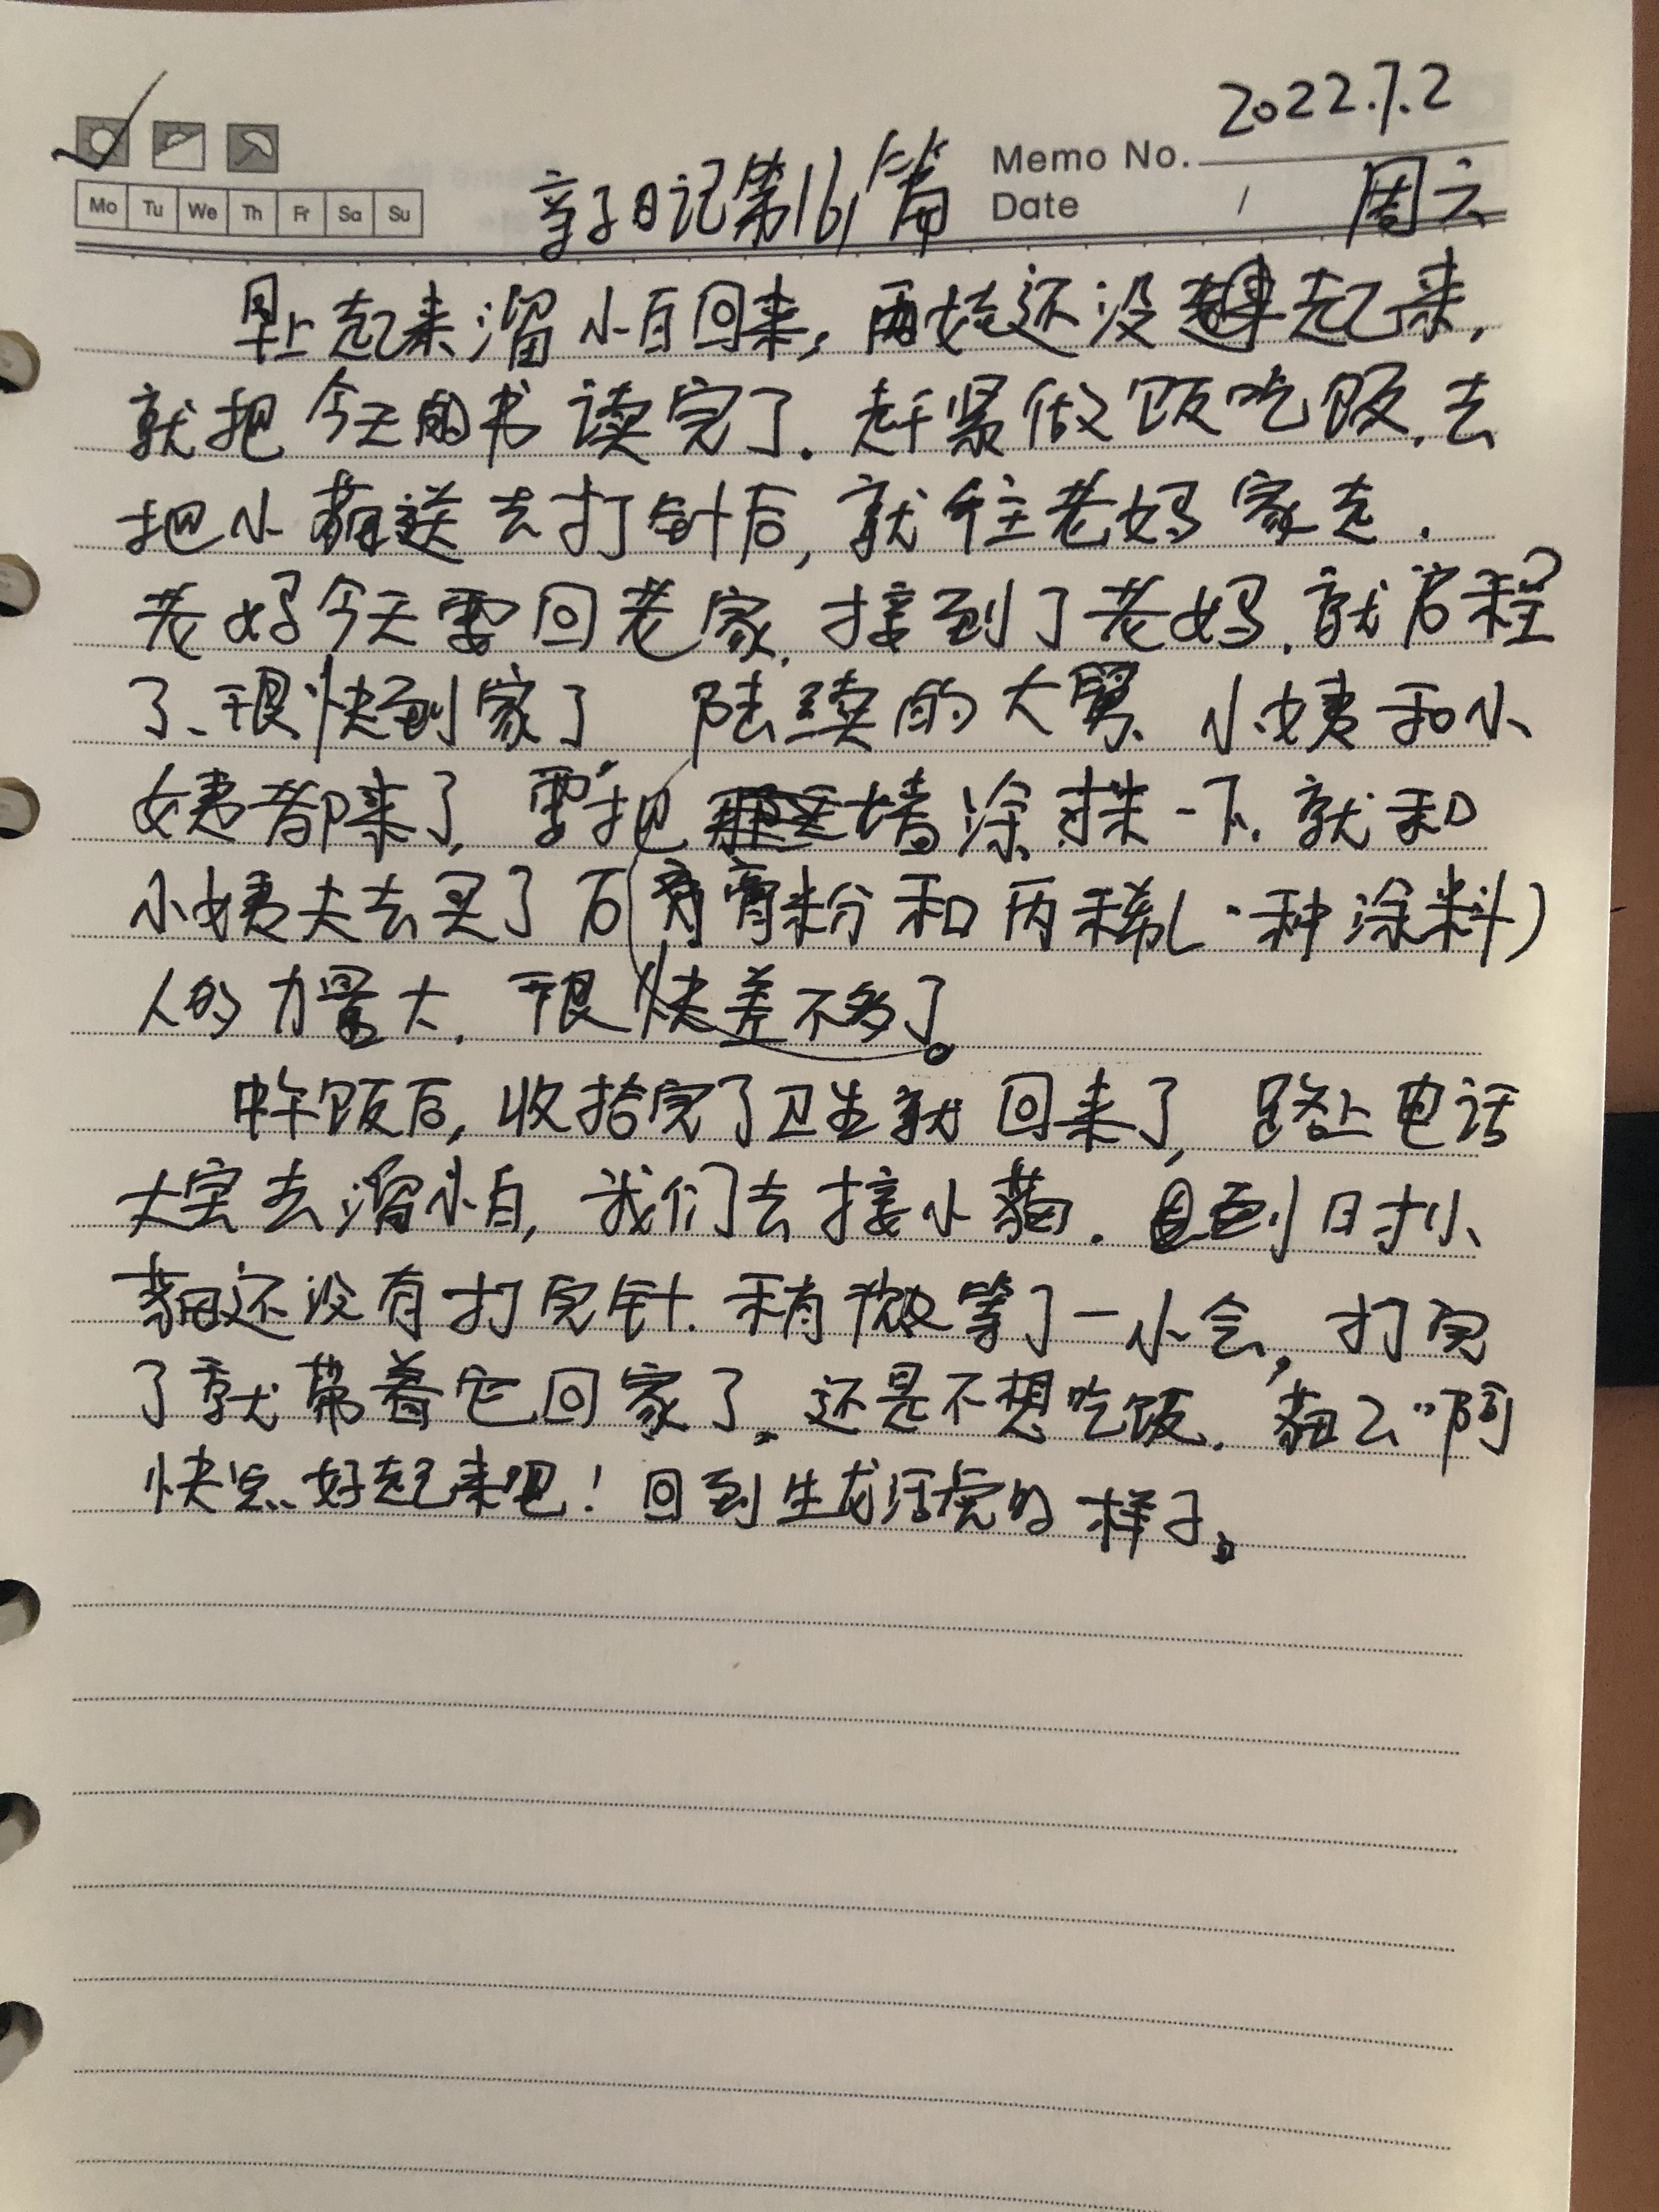 2022.7.2
Memo No.
亲子日记第161篇
Date / 周六
Mo Tu We Th Fr Sa Su
早上起来溜小白回来,两娃还没起来,
就把今天的书读完了.赶紧做饭吃饭.去
把小猫送去打针后,就往老妈家走.
老妈今天要回老家.接到了老妈.就启程
了、很快到家了 陆续的大舅、小姨和小
姨都来了,要把墙涂抹一下.就和
小姨夫去买了石(膏粉和两稀乚·种涂料)
人的力量大.很快差不多了。
中午饭后,收拾完了卫生就回来了,路上电话
大宝去溜小白,我们去接小猫.到时小
猫还没有打完针.稍微等了一小会,打完
了就带着它回家了。还是不想吃饭.猫么"阿
快点好起来吧!回到生龙活虎的样子。